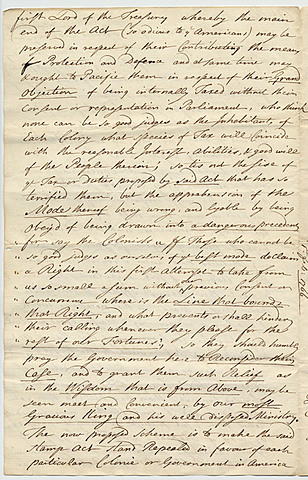 first Lord of the Treasury whereby the main
end of the Act (so odious to ye Americans) may
be preserv'd in respect of their Contributing the means
of Protection and Defence and at same time may
ought to Pacifie them in respect of their Grand
Objection of being internally Taxed without their
Consent or representation in Parliament, who think
none can be so good judges as the Inhabitants of
Each Colony what species of Tax will Coincide
with the respective Interest, Abilities, & good will
of the People therein; so tis not the size of
ye Tax or Duties proposed by said Act that has so
terrified them, but the apprehension of the
Mode thereof being wrong, and lyable by being
obey'd of being drawn into a dangerous precedent
for say the Colonists If Those who cannot be
so good judges as ourselves, if ye Last mode declaring
a Right in this first Attempt to take from
us so small a sum without previous Consent or
Concurrence where is the Line that bounds
that Right, and what prevents or shall hinder
their calling whenever they please for the
rest of our Fortunes; So they should humbly
pray the Government here to their
Case, and to grant them such Relief as
in the Wisdom that is from Above, may be
seen meet and Convenient, by our most
Gracious King and his well disposed Ministry.
The now proposed Scheme is to make the said
Stamp Act stand Repealed in favour of each
particular Colonie or Government in America